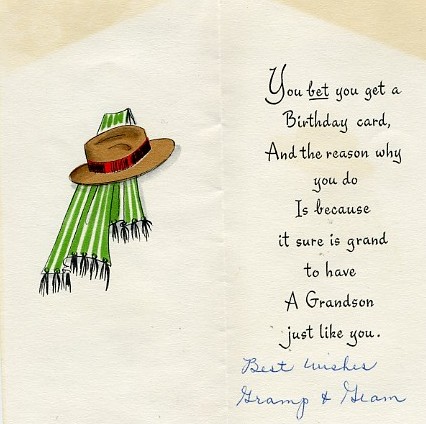 You bet you get a
Birthday card,
And the reason why
you do
Is because
it sure is grand
to have
A Grandson
just like you.
Best Wishes
Gramp & Gram